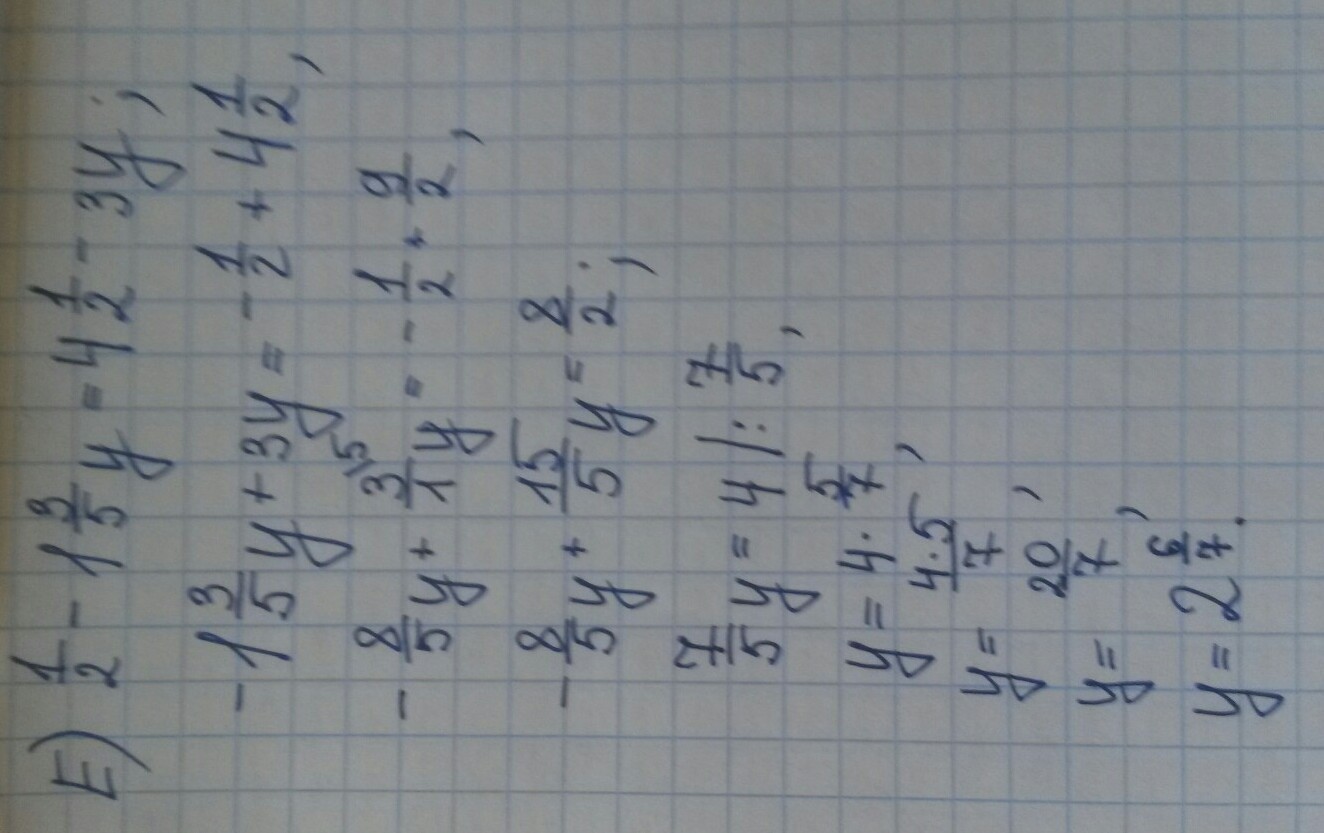 E) 1/2 - 1 3/5 y = 4 1/2 - 3y;
- 1 3/5 y + 3y = - 1/2 + 4 1/2,
- 8/5 y + 3/1 \5 y = - 1/2 + 9/2,
- 8/5 y + 15/5 y = 8/2;
7/5 y = 4 | : 7/5,
y = 4 · 5/7,
y = 4·5/7,
y = 20/7,
y = 2 6/7.